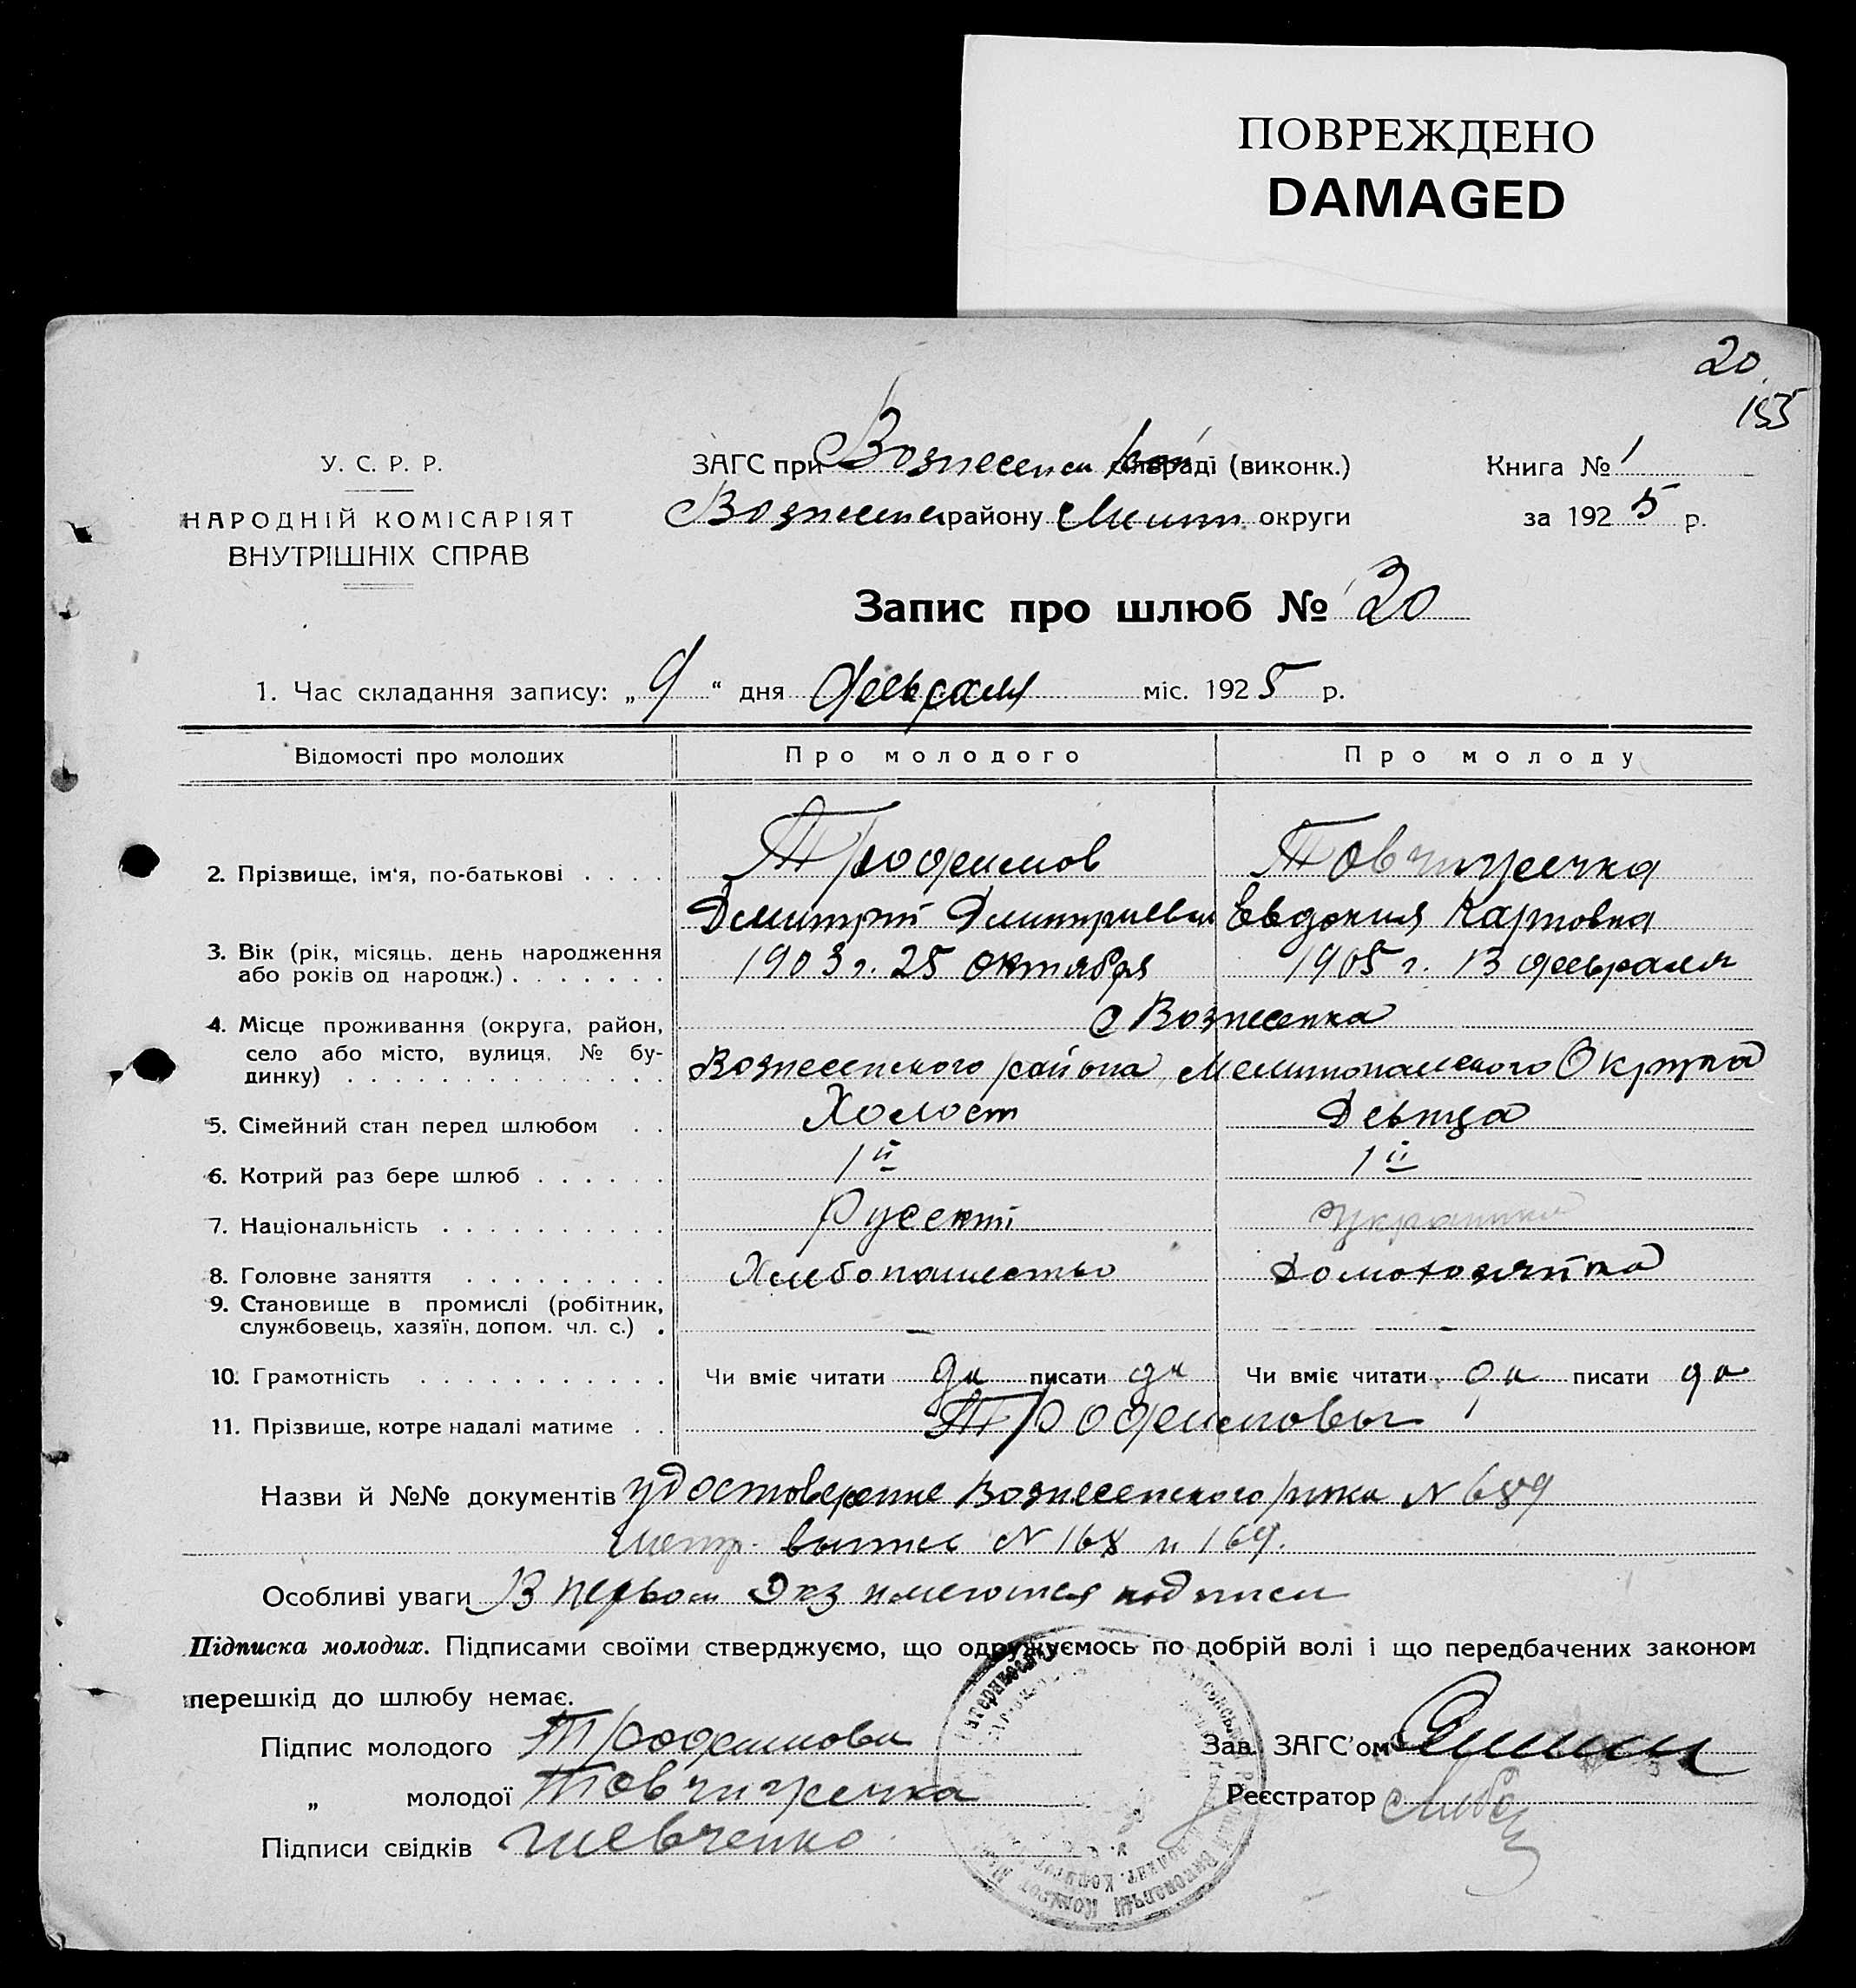 ПОВРЕЖДЕНО
DAMAGED
20
155
У. С. Р. Р.
НАРОДНІЙ КОМІСАРІЯТ
ВНУТРІШНІХ СПРАВ
ЗАГС при Вознесенск раді (виконк.)
району Мелит. округи
Книга № 1
за 1925 р.
Запис про шлюб № 20
1. Час складання запису: „9“ дня февраля міс. 1925 р.
Відомості про молодих Про молодого Про молоду
2. Прізвище, ім'я, по-батькові . . . . Трофимов Товчигречка
Димитрий Дмитриевич Евдокия Карповна
3. Вік (рік, місяць, день народження
або років од народж.) . . . . . . . 1903 г. 25 октября 1905 г. 13 февраля
4. Місце проживання (округа, район, с Вознесенка
село або місто, вулиця, № бу-
динку) . . . . . . . . . . . . . . Вознесенского района, Мелитопольского Округа
5. Сімейний стан перед шлюбом . . Холост Девица
6. Котрий раз бере шлюб . . . . . . 1й 1й
7. Національність . . . . . . . . . . Русский Украинка
8. Головне заняття . . . . . . . . . Хлебопашество Домохозяйка
9. Становище в промислі (робітник,
службовець, хазяїн, допом. чл. с.) . — —
10. Грамотність . . . . . . . . . . . Чи вміє читати да писати да Чи вміє читати да писати да
11. Прізвище, котре надалі матиме . . Трофимовы
Назви й №№ документів удостоверение Вознесенского рика N 689
метр. выпись N 168 и 169.
Особливі уваги В первом Экз имеются подписи
Підписка молодих. Підписами своїми стверджуємо, що одружуємось по добрій волі і що передбачених законом
перешкід до шлюбу немає.
Підпис молодого Трофимовы
„ молодої Товчигречка
Підписи свідків Шевченко
Зав. ЗАГС'ом
Реєстратор